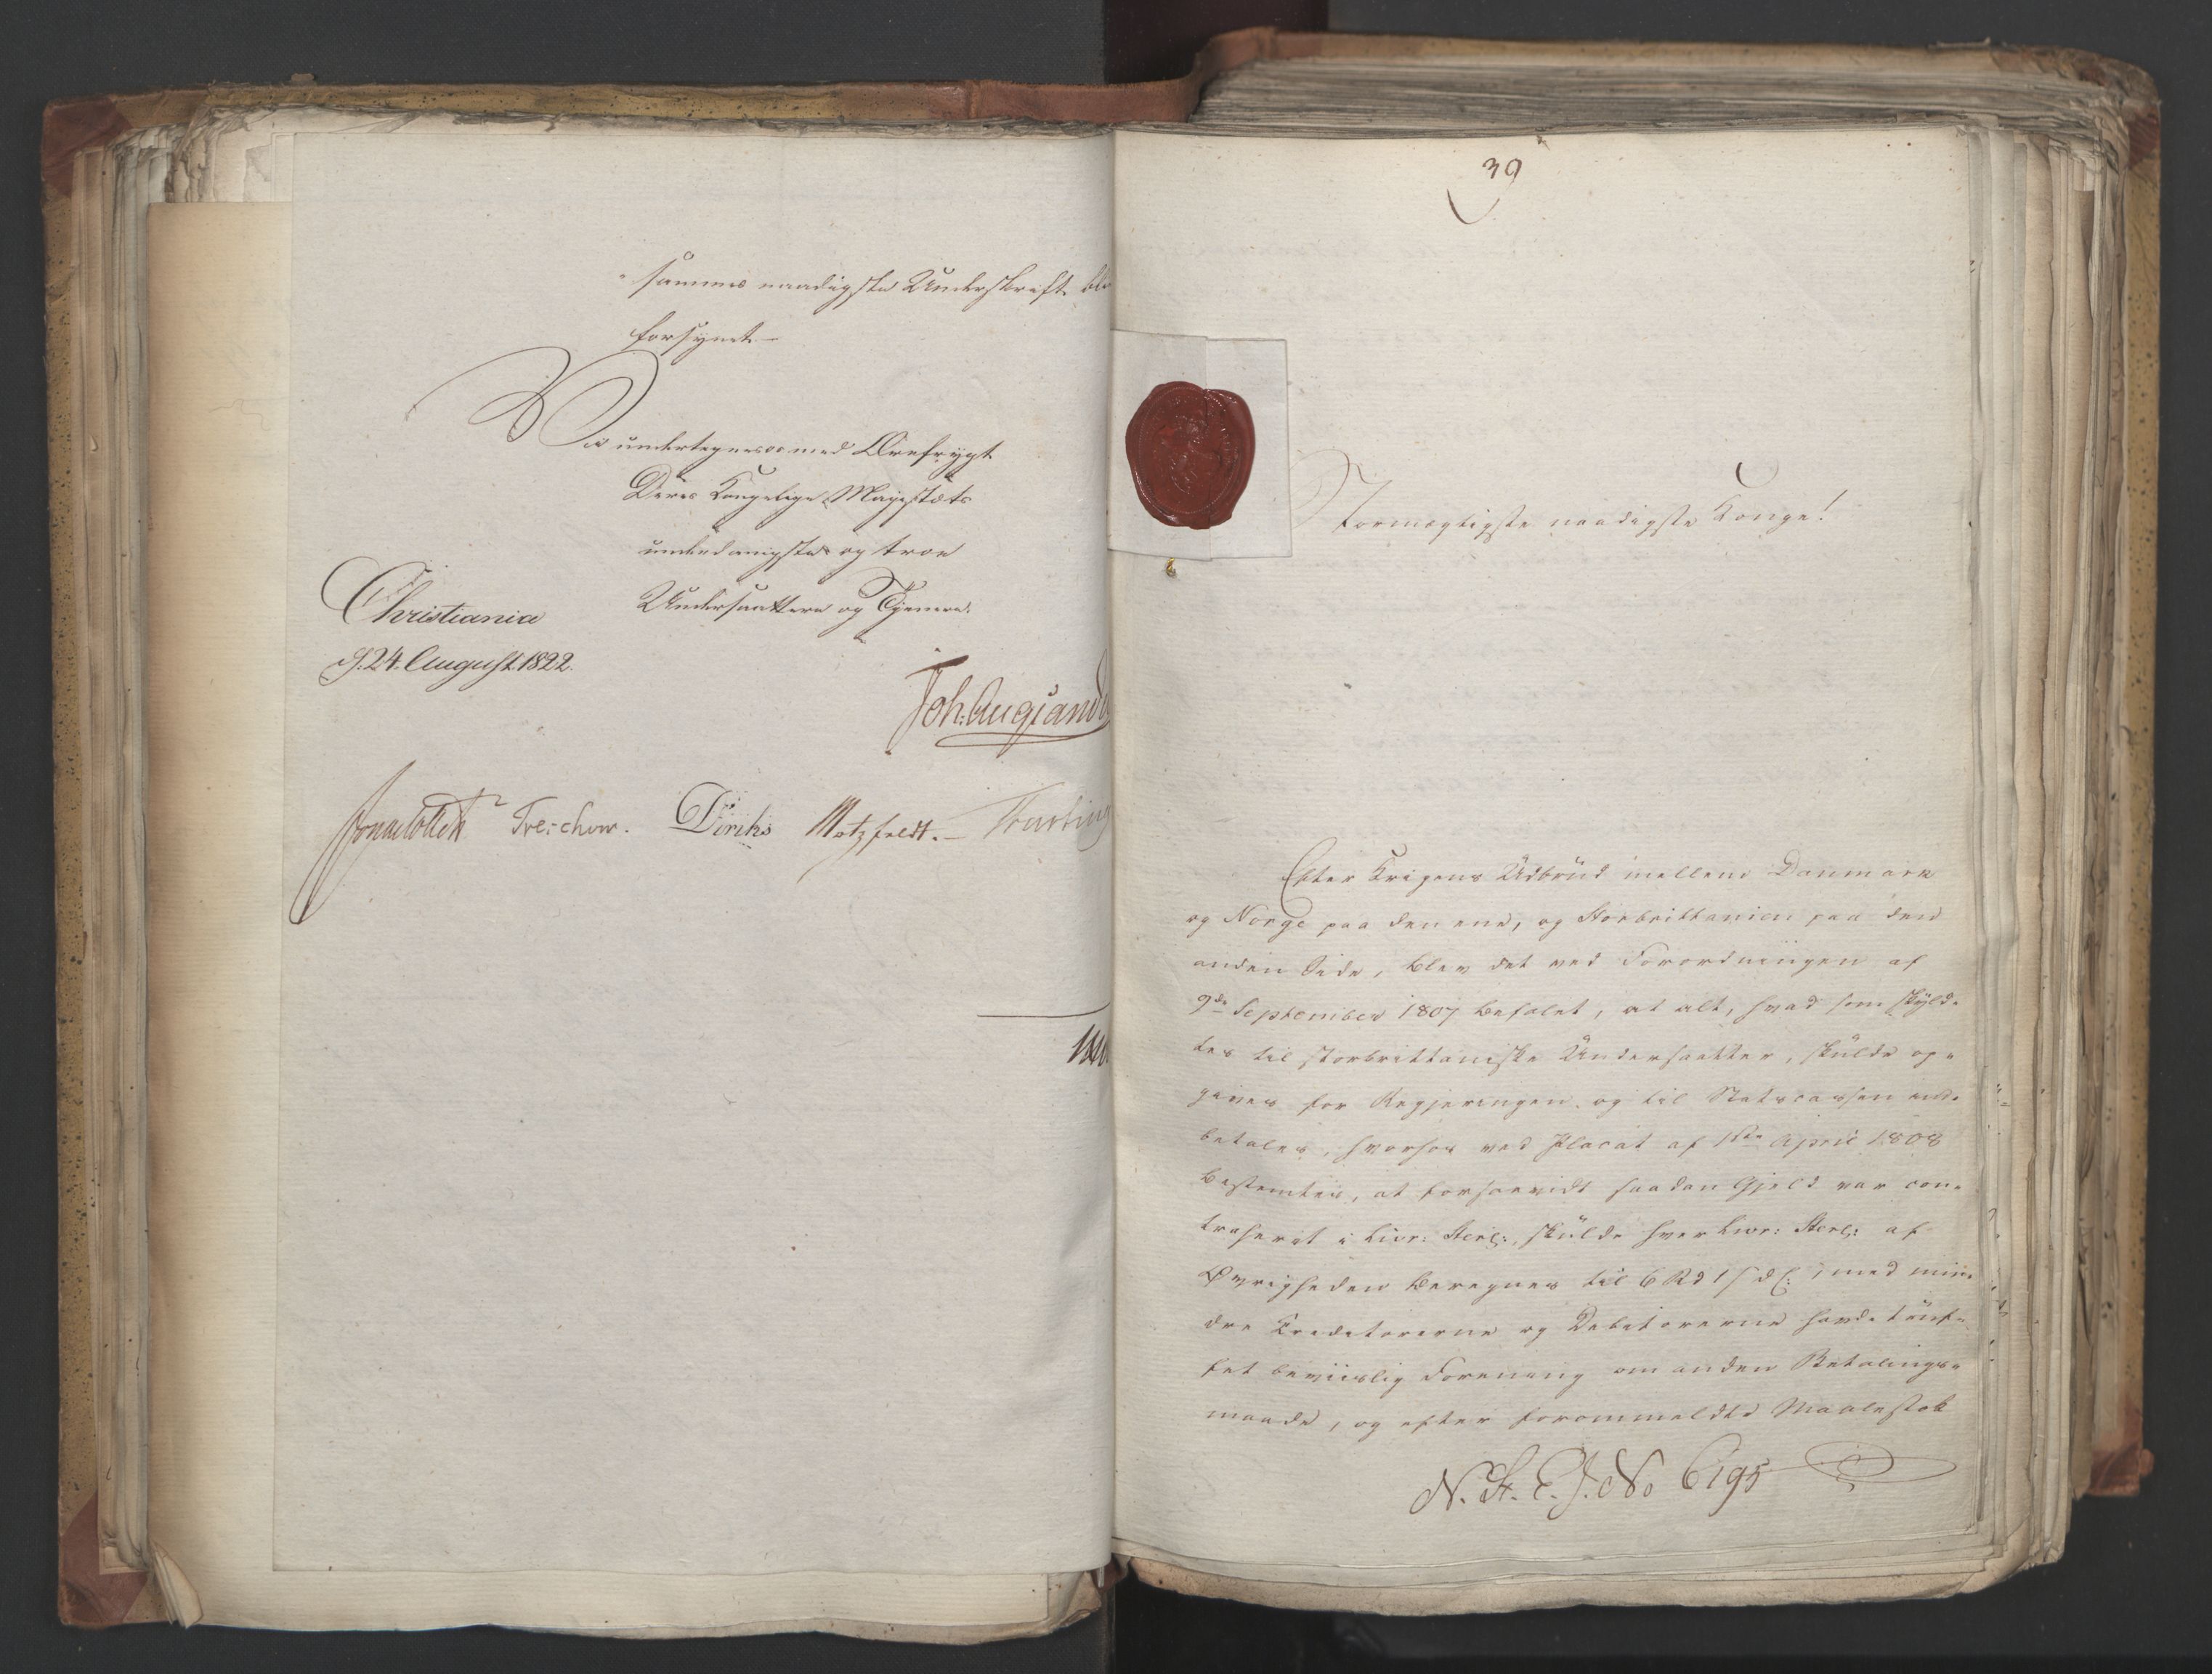 "sammes naadigste Underskrift
forsynet.
Vi undertegne os med Ærefrygt
Deres Kongelige Majestæts
underdanigste og troe
Undersaatter og Tjenere.
Christiania
d. 24. August. 1822.
Joh: Aug: Sand
Jonas Collett Treschow. Diriks Motzfeldt.
39
Stormægtigste naadigste Konge!
Efter Krigens Udbrud mellem Danmark
og Norge paa den ene, og Storbrittanien paa den
anden Side, blev det ved Forordningen af
9de September 1807 befalet, at alt, hvad som skyld-
tes til storbrittaniske Undersaatter, skulde op-
gives for Regjeringen og til Statscassen ind-
betales, hvorhos ved Placat af 1ste April 1808
bestemtes, at forsaavidt saadan Gjeld var con-
traheret i Livr: Sterl:, skulde hver Livr: Sterl: af
Øvrigheden beregnes til 6 Rd 1/ d C:, med min-
dre Creditorerne og Debitorerne havde truf-
fet beviislig Forening om anden Betalings-
maade, og efter forommeldte Maalestok
N. St. C. J. No 6195